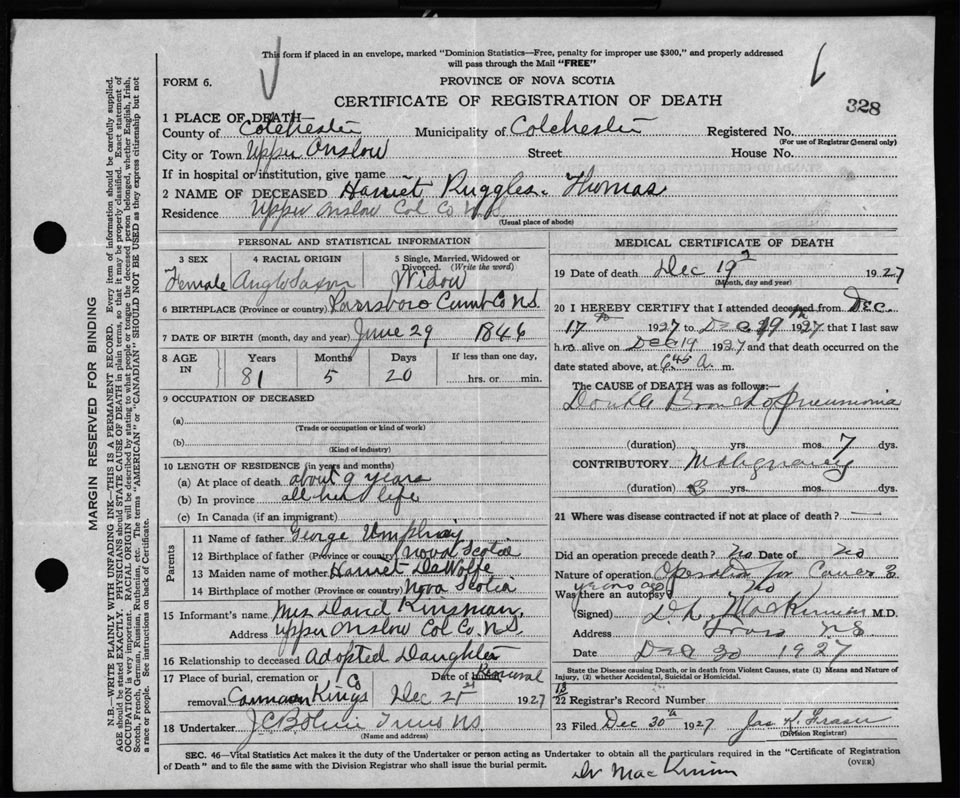 This form if placed in an envelope, marked "Dominion Statistics—Free, penalty for improper use $300," and properly addressed
will pass through the Mail "FREE"
FORM 6.
PROVINCE OF NOVA SCOTIA
CERTIFICATE OF REGISTRATION OF DEATH
328
1 PLACE OF DEATH—
County of Colchester Municipality of Colchester Registered No.
(For use of Registrar General only)
City or Town Upper Onslow Street House No.
If in hospital or institution, give name
2 NAME OF DECEASED Harriet Ruggles Thomas
Residence Upper Onslow Col Co N.S.
(Usual place of abode)
PERSONAL AND STATISTICAL INFORMATION
3 SEX 4 RACIAL ORIGIN 5 Single, Married, Widowed or
Divorced. (Write the word)
Female Anglo Saxon Widow
6 BIRTHPLACE (Province or country) Parrsboro Cumb Co N.S.
7 DATE OF BIRTH (month, day and year) June 29 1846
8 AGE IN Years Months Days If less than one day,
81 5 20 hrs. or min.
9 OCCUPATION OF DECEASED
(a)
(Trade or occupation or kind of work)
(b)
(Kind of industry)
10 LENGTH OF RESIDENCE (in years and months)
(a) At place of death about 9 years
(b) In province all her life
(c) In Canada (if an immigrant)
Parents
11 Name of father George
12 Birthplace of father (Province or country) Nova Scotia
13 Maiden name of mother Harriet DeWolfe
14 Birthplace of mother (Province or country) Nova Scotia
15 Informant's name Mrs David Kinsman,
Address Upper Onslow Col Co. N.S.
16 Relationship to deceased Adopted Daughter
17 Place of burial, cremation or Date of Removal
removal Kings Co Dec 21st 1927
18 Undertaker Truro N.S.
(Name and address)
MEDICAL CERTIFICATE OF DEATH
19 Date of death Dec 19 1927
(Month, day and year)
20 I HEREBY CERTIFY that I attended deceased from Dec.
17 1927 to Dec 19 1927 that I last saw
h alive on Dec 19 1927 and that death occurred on the
date stated above, at 6 45 a. m.
The CAUSE OF DEATH was as follows:—
Double Broncho pneumonia
(duration) yrs. mos. 7 dys.
CONTRIBUTORY Malignancy
(duration) yrs. mos. dys.
21 Where was disease contracted if not at place of death? —
Did an operation precede death? No Date of no
Nature of operation Operation for Cancer 3
years ago
Was there an autopsy? No
(Signed) MacKinnon M.D.
Address Truro N.S.
Date Dec 20 1927
State the Disease causing Death, or in death from Violent Causes, state (1) Means and Nature
of Injury, (2) whether Accidental, Suicidal or Homicidal.
13
22 Registrar's Record Number
23 Filed Dec 30th 1927 Jas Fraser
(Division Registrar)
SEC. 46—Vital Statistics Act makes it the duty of the Undertaker or person acting as Undertaker to obtain all the particulars required in the "Certificate of Registration
of Death" and to file the same with the Division Registrar who shall issue the burial permit.
(OVER)
Dr MacKinnon
MARGIN RESERVED FOR BINDING
N.B.—WRITE PLAINLY WITH UNFADING INK—THIS IS A PERMANENT RECORD. Every item of information should be carefully supplied.
AGE should be stated EXACTLY. PHYSICIANS should STATE CAUSE OF DEATH in plain terms, so that it may be properly classified. Exact statement of
OCCUPATION is very important. RACIAL ORIGIN will be described by stating to what people or tongue the deceased person belonged, whether English, Irish,
Scotch, French, German, Russian, Ruthenian, etc. The terms "AMERICAN" or "CANADIAN" SHOULD NOT BE USED as they express citizenship but not
a race or people. See instructions on back of Certificate.